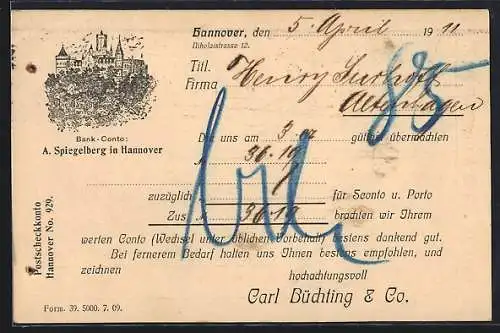 Hannover, den 5. April 1911
Nikolaistrasse 12.
Titl. Henry
Firma
Altenhagen
Bank-Conto:
A. Spiegelberg in Hannover
Die uns am 3. gütigst übermachten
M 36.19
zuzüglich für Sconto u. Porto
Zus. M 36.19 brachten wir Ihrem
werten Conto (Wechsel unter üblichem Vorbehalt) bestens dankend gut.
Bei fernerem Bedarf halten uns Ihnen bestens empfohlen, und
zeichnen hochachtungsvoll
Carl Büchting & Co.
Postscheckkonto
Hannover No. 929.
Form. 39. 5000. 7. 09.
85